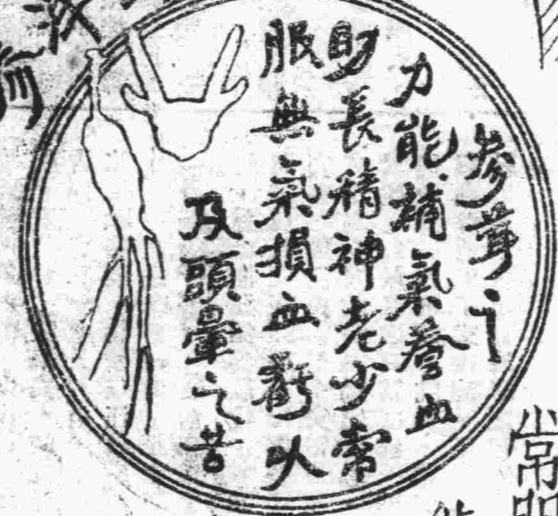 參茸之
力能補氣養血
助長精神老少常
服無氣損血虧以
及頭暈之苦
常服